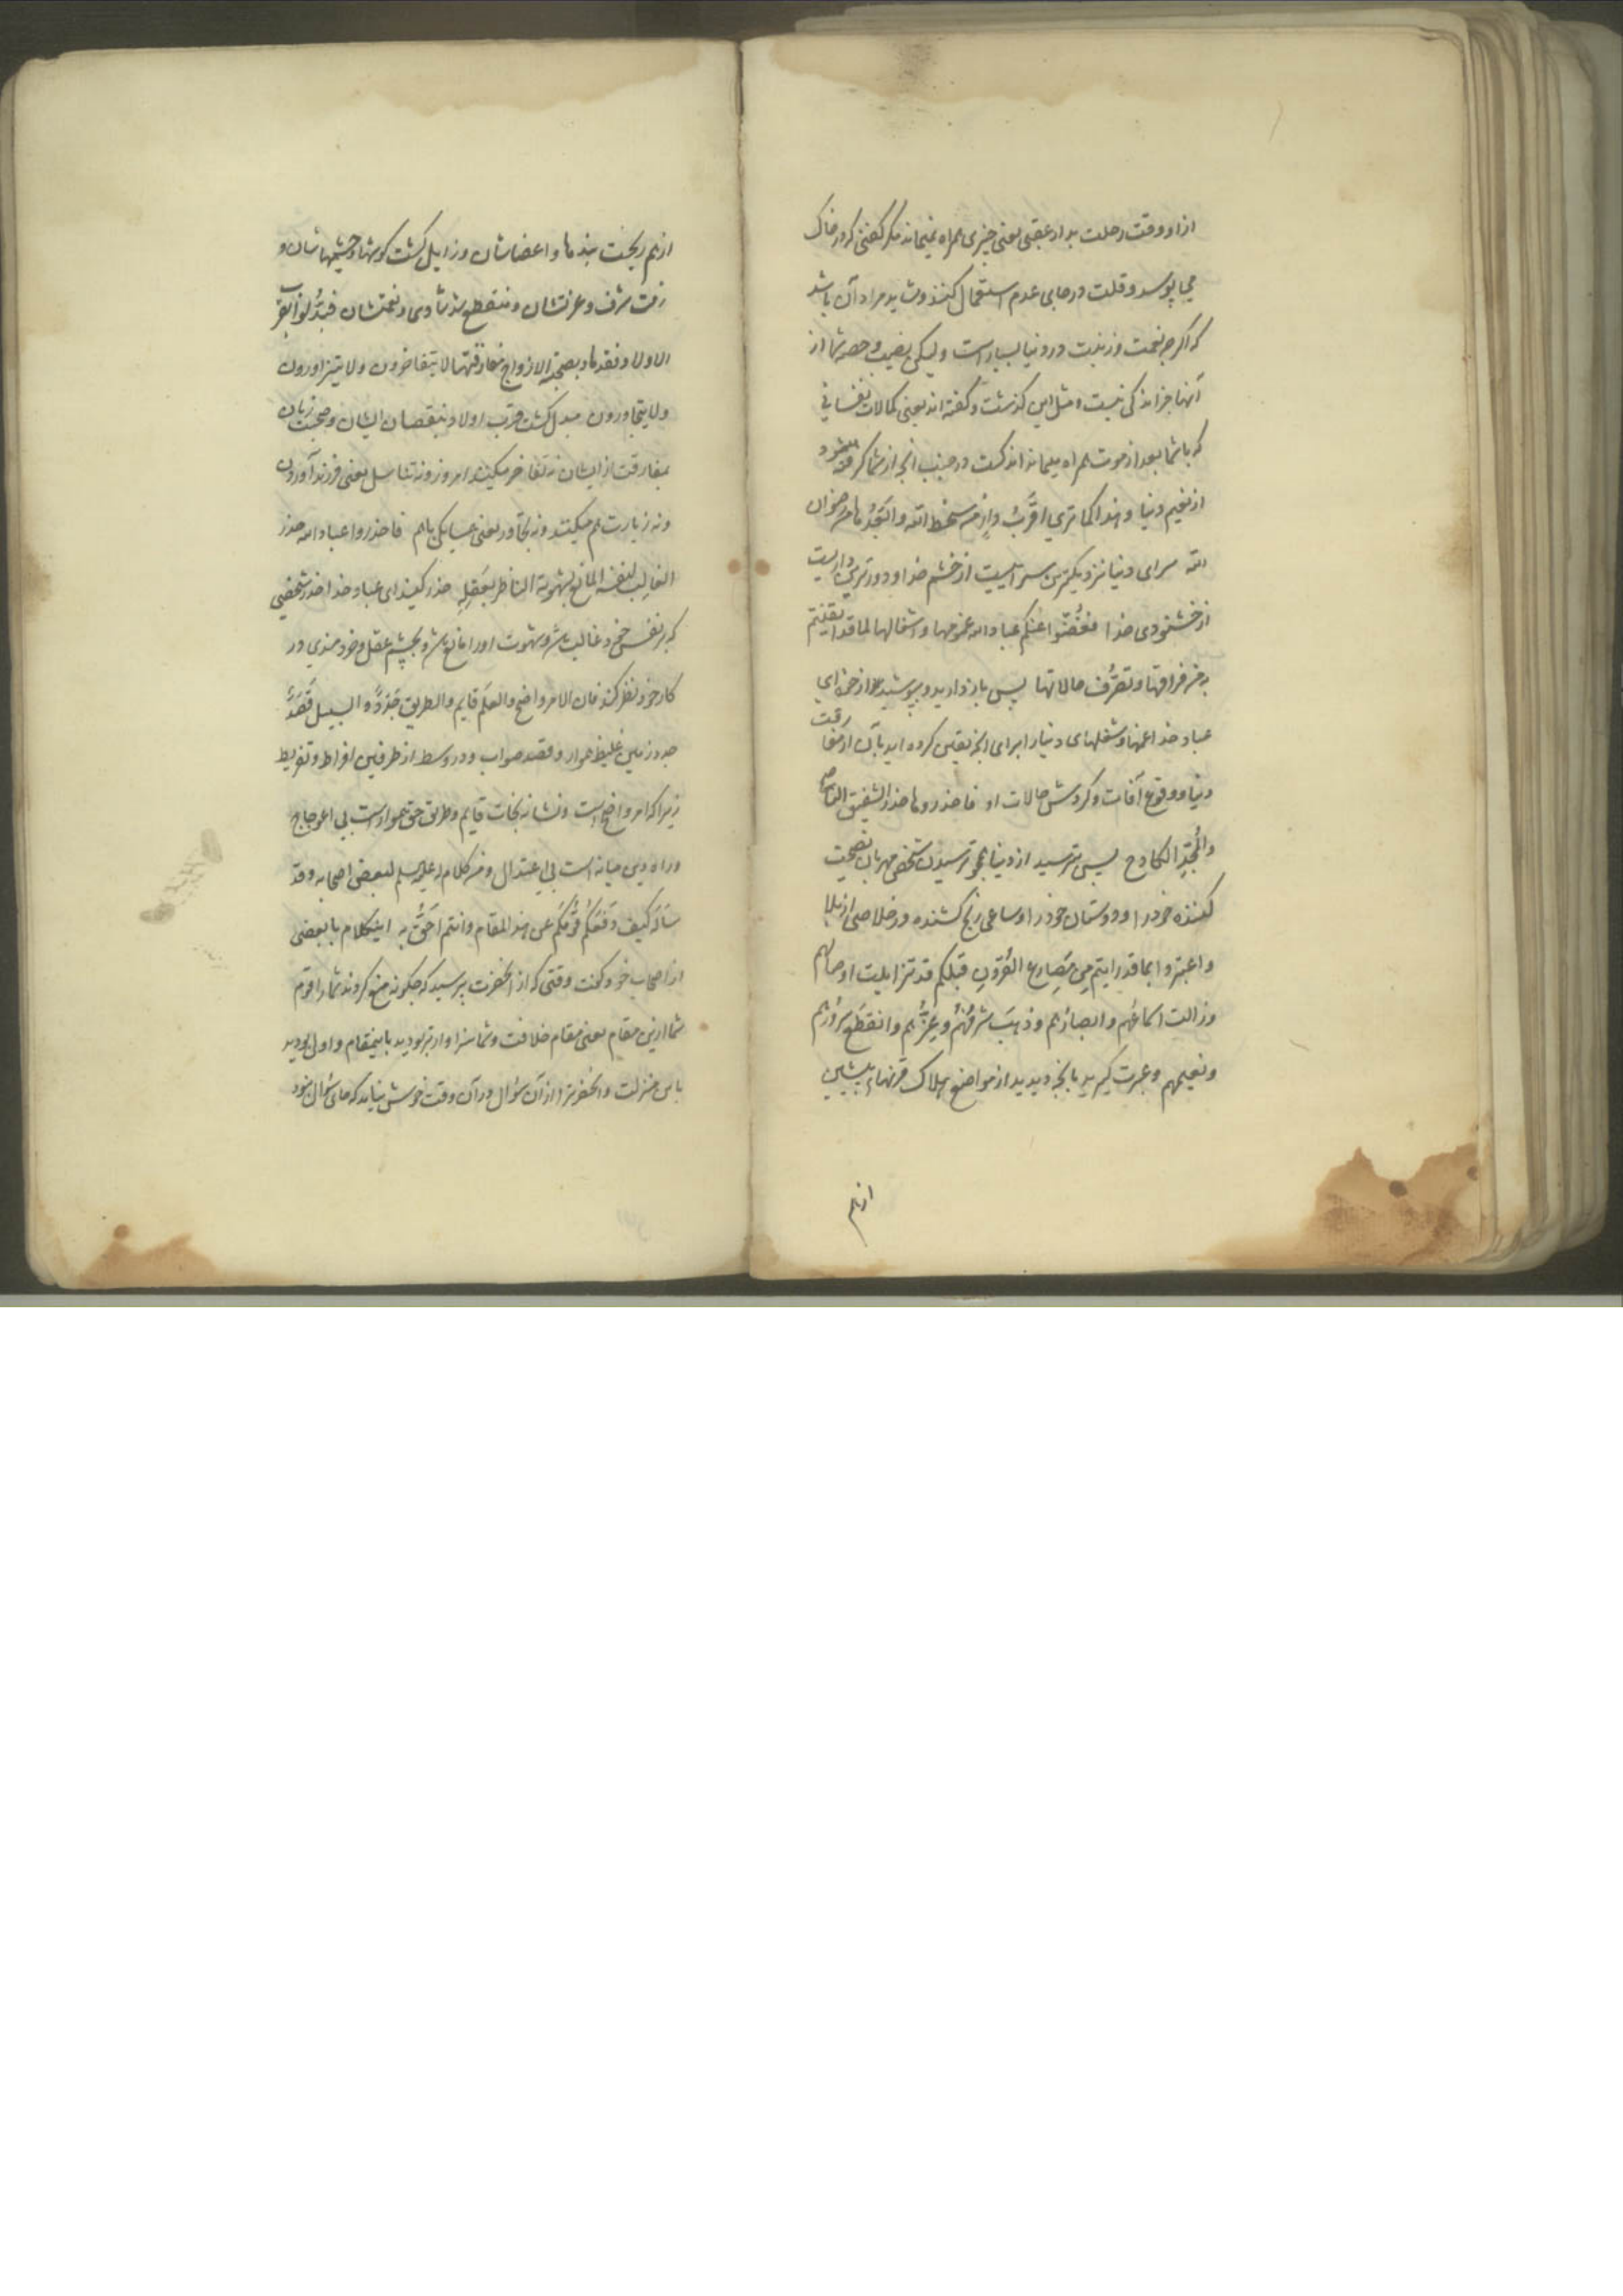 ازاو وقت رحلت بدار عقبی یعنی چیزی همراه نمیماند مگر کفنی که در خاک
می پوسد و قلت در جای عدم استعمال کنند و شاید مراد آن باشد
که اگر چه نعمت و زینت در دنیا بسیار است ولیکن نصیب و حصه شما از
آنها جز اندکی نیست و مثل این گذشت و گفته اند یعنی کمالات نفسانی
که با شما بعد از موت همراه میماند اندکست در جنب انچه از شما گرفته میشود
از نعیم دنیا و هذا کما تری اقرب دار من سخط الله وابعدها من رضوان
الله سرای دنیا نزدیکترین سرائیست از خشم خدا و دورترین داریست
از خشنودی خدا فغضوا عنکم عباد الله غمومها واشغالها لما قد ایقنتم
به من فراقها وتصرف حالاتها پس باز دارید و بپوشید از خود ای
عباد خدا غمها و شغلهای دنیا را برای انچه یقین کرده اید بآن از مفارقت
دنیا و وقوع آفات و گردش حالات او فاحذروها حذر الشفیق الناصح
والمجد الکادح پس بترسید از دنیا همچو ترسیدن شخصی مهربان نصیحت
کننده خود را و دوستان خود را و ساعی رنج کشنده در خلاصی از بلا
واعتبروا بما قد رایتم من مصارع القرون قبلکم قد تزایلت اوصالهم
وزالت اسماعهم وابصارهم وذهب شرفهم وعزهم وانقطع سرورهم
ونعیمهم و عبرت گیرید بانچه دیدید از مواضع هلاک قرنهاء پیشین
ازهم
ازهم ریخت بندها و اعضاشان و زایل گشت گوشها و چشمهاشان و
رفت شرف و عزتشان و منقطع شد شادی و نعمتشان فبدلوا بقرب
الاولاد فقدها وبصحبة الازواج مفارقتها لا یتفاخرون ولا یتزاورون
ولا یتجاورون مبدل گشت قرب اولاد بنقصان ایشان و صحبت زنان
بمفارقت از ایشان نه تفاخر میکنند امروز و نه تناسل یعنی فرزند آوردن
و نه زیارت هم میکنند و نه تجاور یعنی همسایگی باهم فاحذروا عباد الله حذر
الغالب لنفسه المانع لشهوته الناظر بعقله حذر کنید ای عباد خدا حذر شخصی
که بر نفس خود غالب باشد و شهوت او را مانع باشد و بچشم عقل و خردمندی در
کار خود نظر کند فان الامر واضح والعلم قایم والطریق جدد والسبیل قصد
جدد زمین غلیظ هموار و قصد صواب و در وسط از طرفین افراط و تفریط
زیرا که امر واضح است و نشانه نجات قایم و طریق حق هموار است بی اعوجاج
و راه دین میانه است بی اعتدال ومن کلام له علیه السلم لبعض اصحابه وقد
ساله کیف دفعکم قومکم عن هذا المقام وانتم احق به اینکلام با بعضی
از اصحاب خود گفت وقتی که از انحضرت پرسید که چگونه منع کردند شما را قوم
شما ازین مقام یعنی مقام خلافت و شما سزاوارتر بودید باینمقام و اولی بودید
باین منزلت و انحضرت را از آن سؤال در آن وقت خوش نیامد که جای سؤال نبود